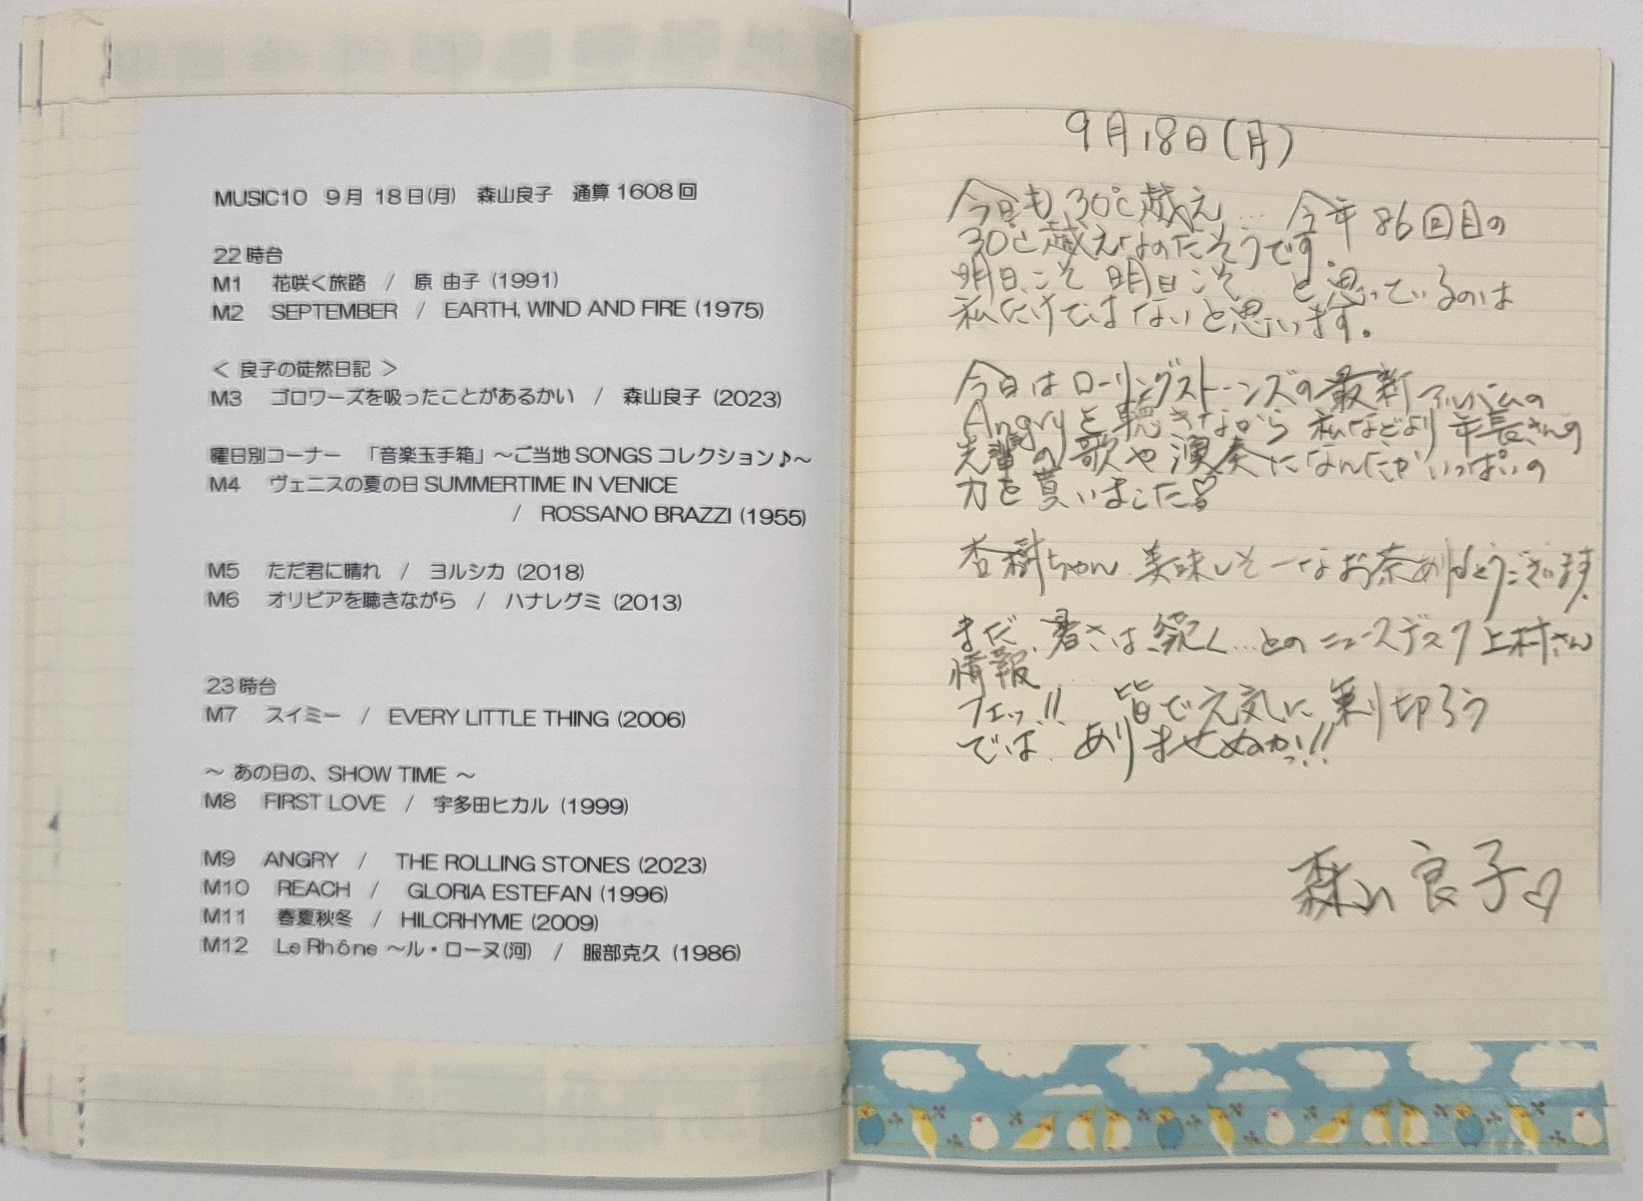 MUSIC10 9月 18日(月) 森山良子 通算1608回
22時台
M1 花咲く旅路 / 原 由子 (1991)
M2 SEPTEMBER / EARTH, WIND AND FIRE (1975)
< 良子の徒然日記 >
M3 ゴロワーズを吸ったことがあるかい / 森山良子 (2023)
曜日別コーナー 「音楽玉手箱」～ご当地SONGSコレクション♪～
M4 ヴェニスの夏の日 SUMMERTIME IN VENICE
/ ROSSANO BRAZZI (1955)
M5 ただ君に晴れ / ヨルシカ (2018)
M6 オリビアを聴きながら / ハナレグミ (2013)
23時台
M7 スイミー / EVERY LITTLE THING (2006)
～ あの日の、SHOW TIME ～
M8 FIRST LOVE / 宇多田ヒカル (1999)
M9 ANGRY / THE ROLLING STONES (2023)
M10 REACH / GLORIA ESTEFAN (1996)
M11 春夏秋冬 / HILCRHYME (2009)
M12 Le Rhône ～ル・ローヌ(河) / 服部克久 (1986)
9月18日(月)
今日も30℃越え… 今年86回目の
30℃越えなのだそうです。
明日こそ 明日こそ… と思っているのは
私だけではないと思います。
今日はローリングストーンズの最新アルバムの
Angryを聴きながら 私などより年長さんの
先輩の歌や演奏になんだかいっぱいの
力を貰いました♡
杏樹ちゃん 美味しそーなお茶ありがとうございます
まだ、暑さは続く…とのニュースデスク上村さん
情報
フエッ!! 皆で元気に乗り切ろう
では ありませぬか!!
森山良子♡